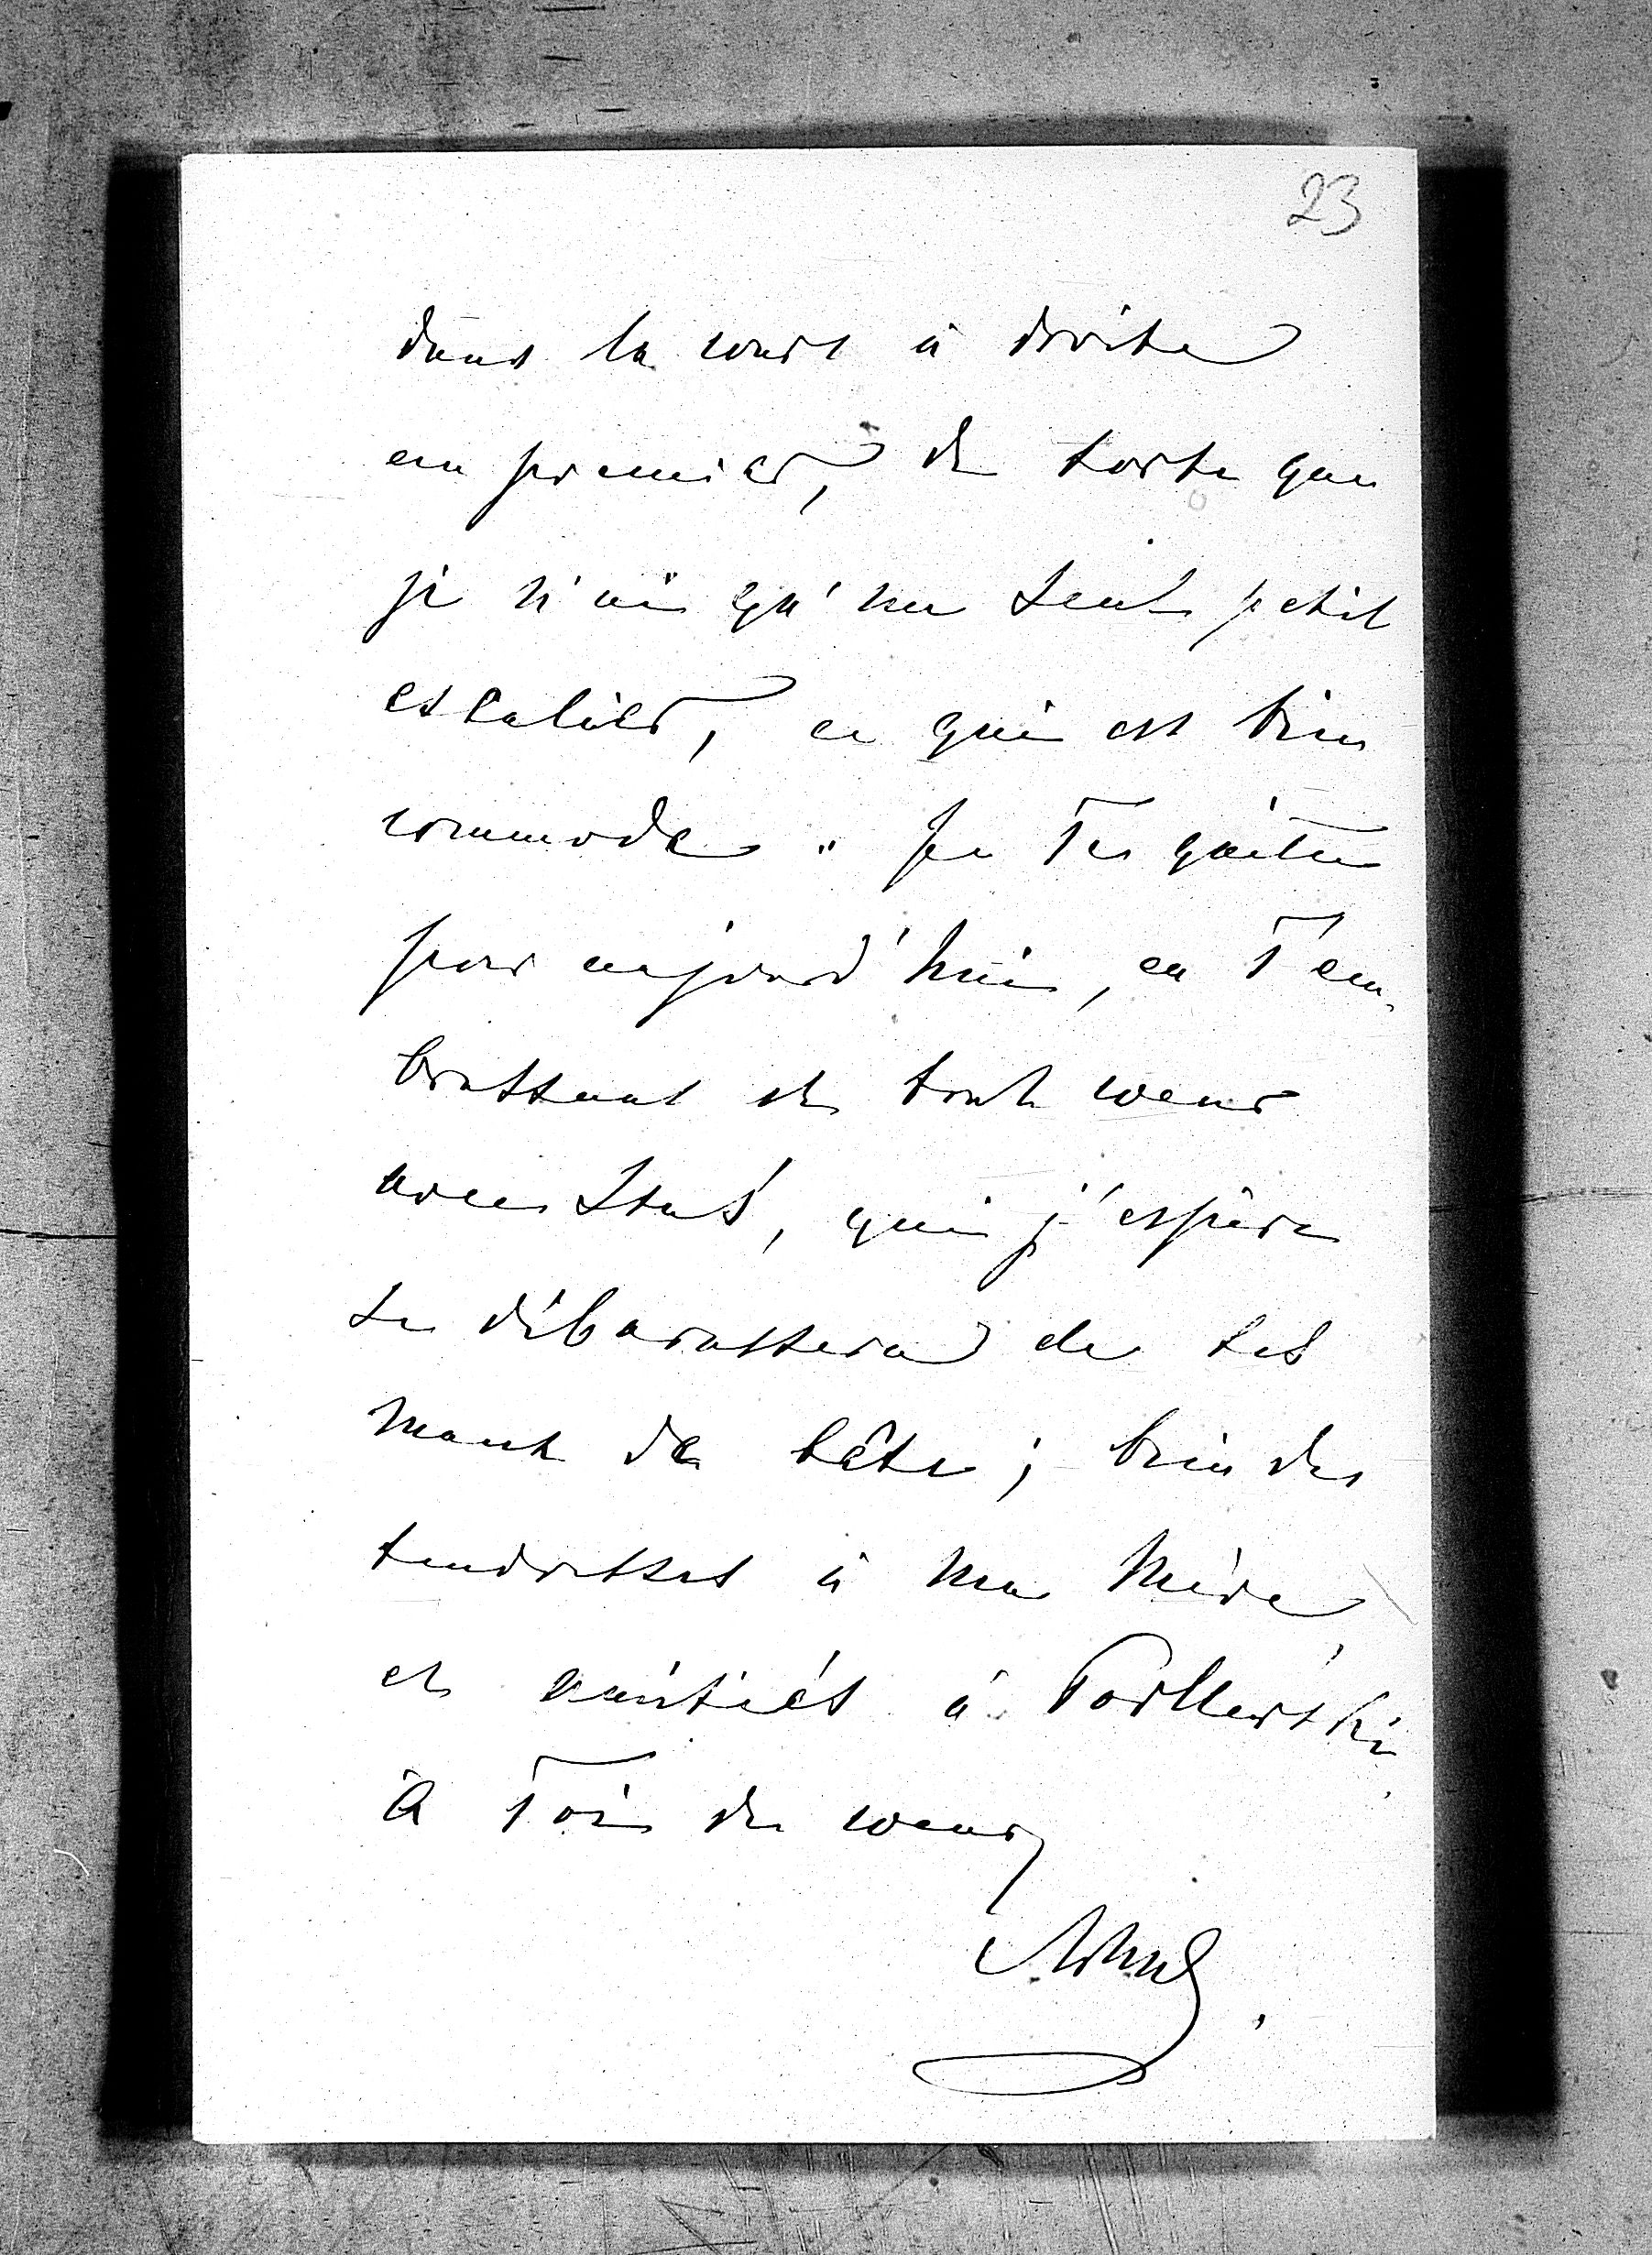 23
dans la cour à droite
au premier, de sorte que
je n'ai qu'un seul petit
escalier, ce qui est bien
commode. Je Te quitte
pour aujourd'hui, en T'em-
brassant de tout cœur
avec Staś, qui j'espère
se débarassera de ses
maux de tête; bien des
tendresses à ma Mère
et amitiés à
À Toi de cœur